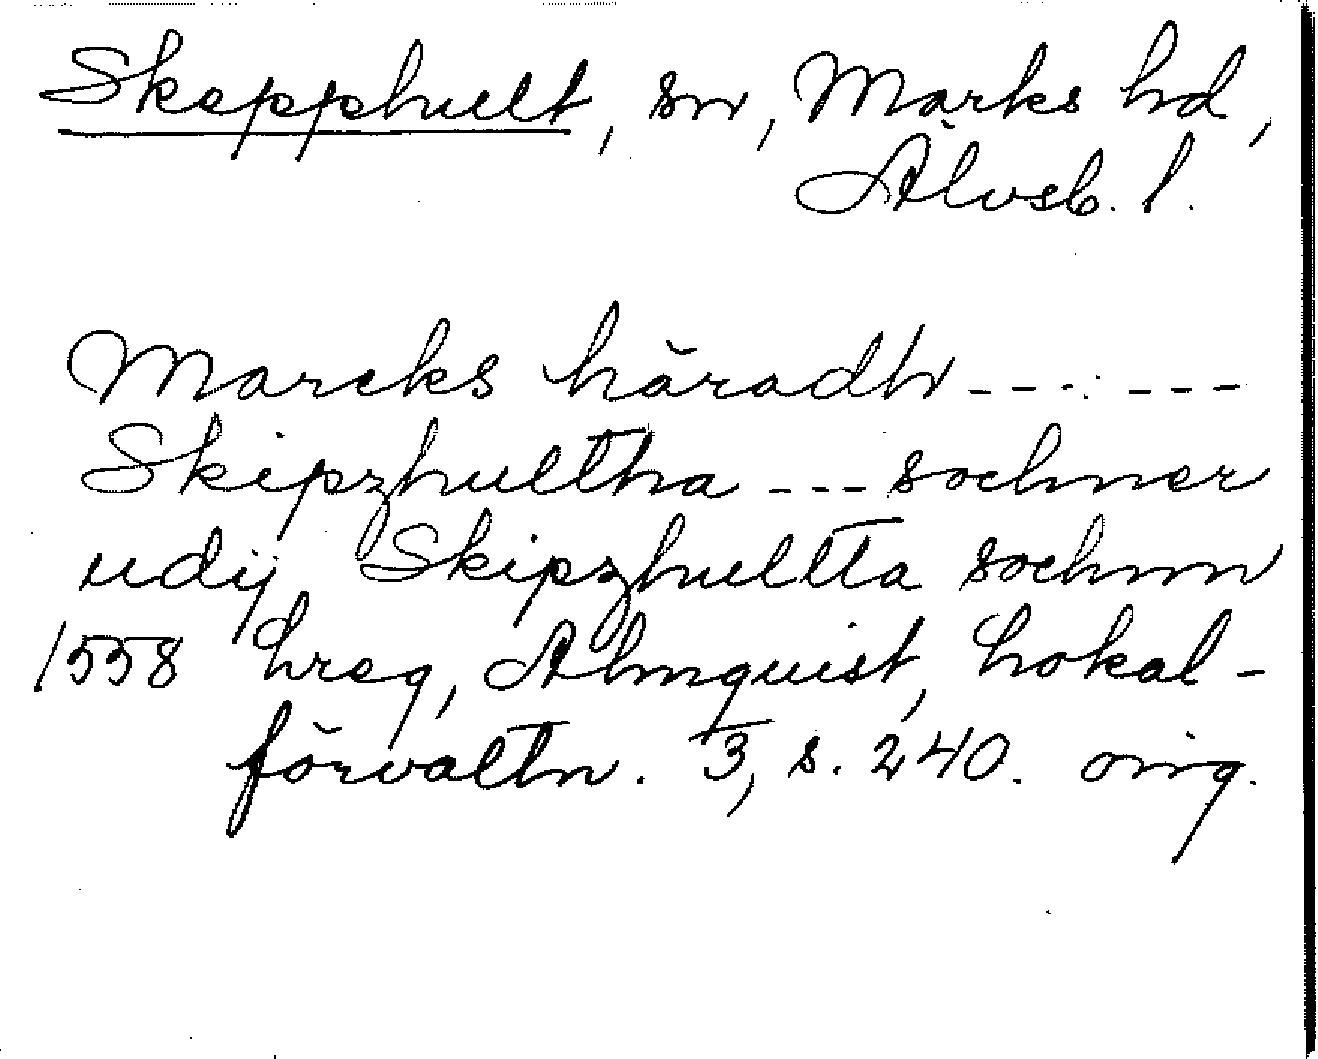 Skepphult, sn, Marks hd,
Älvsb. l.
Marcks häradh --- ---
Skipzhultha --- sochner
udij Skipzhultta sochnn
1558 hreg, Almquist, Lokal-
förvaltn. 3, s. 240. orig.